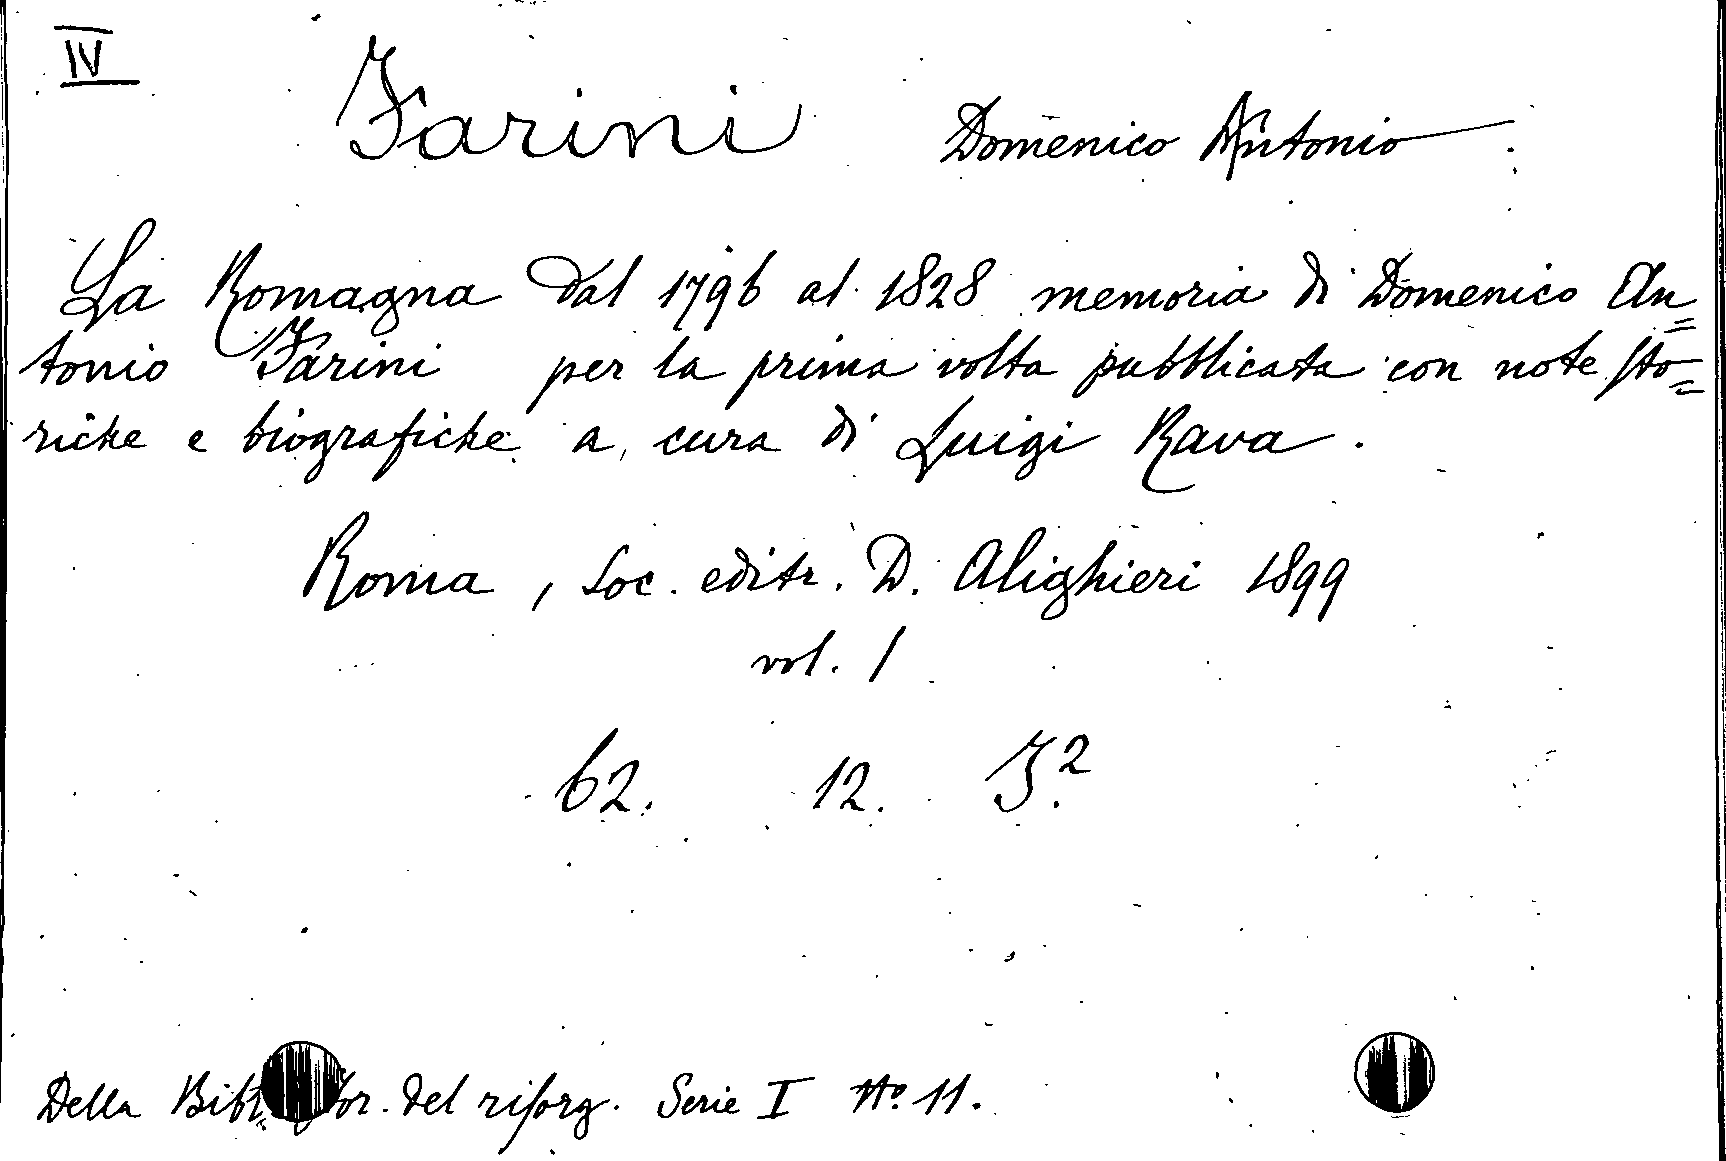 IV
Farini Domenico Antonio.
La Romagna dal 1796 al 1828 memoria di Domenico An=
tonio Farini per la prima volta pubblicata con note sto=
riche e biografiche a cura di Luigi Rava.
Roma, Soc. editr. D. Alighieri 1899
vol. 1
62. 12. J.2
Della Bibl. stor. del risorg. Serie I No. 11.